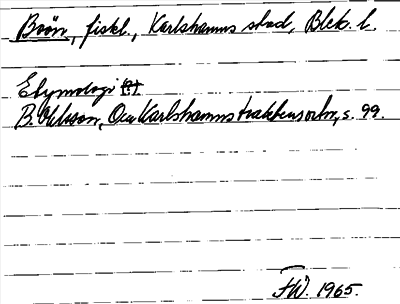 Boön, fiskl., Karlshamns stad, Blek. l.
Etymologi (?)
B. Ohlsson, Om Karlshamnstraktens ortn., s. 99.
FW. 1965.